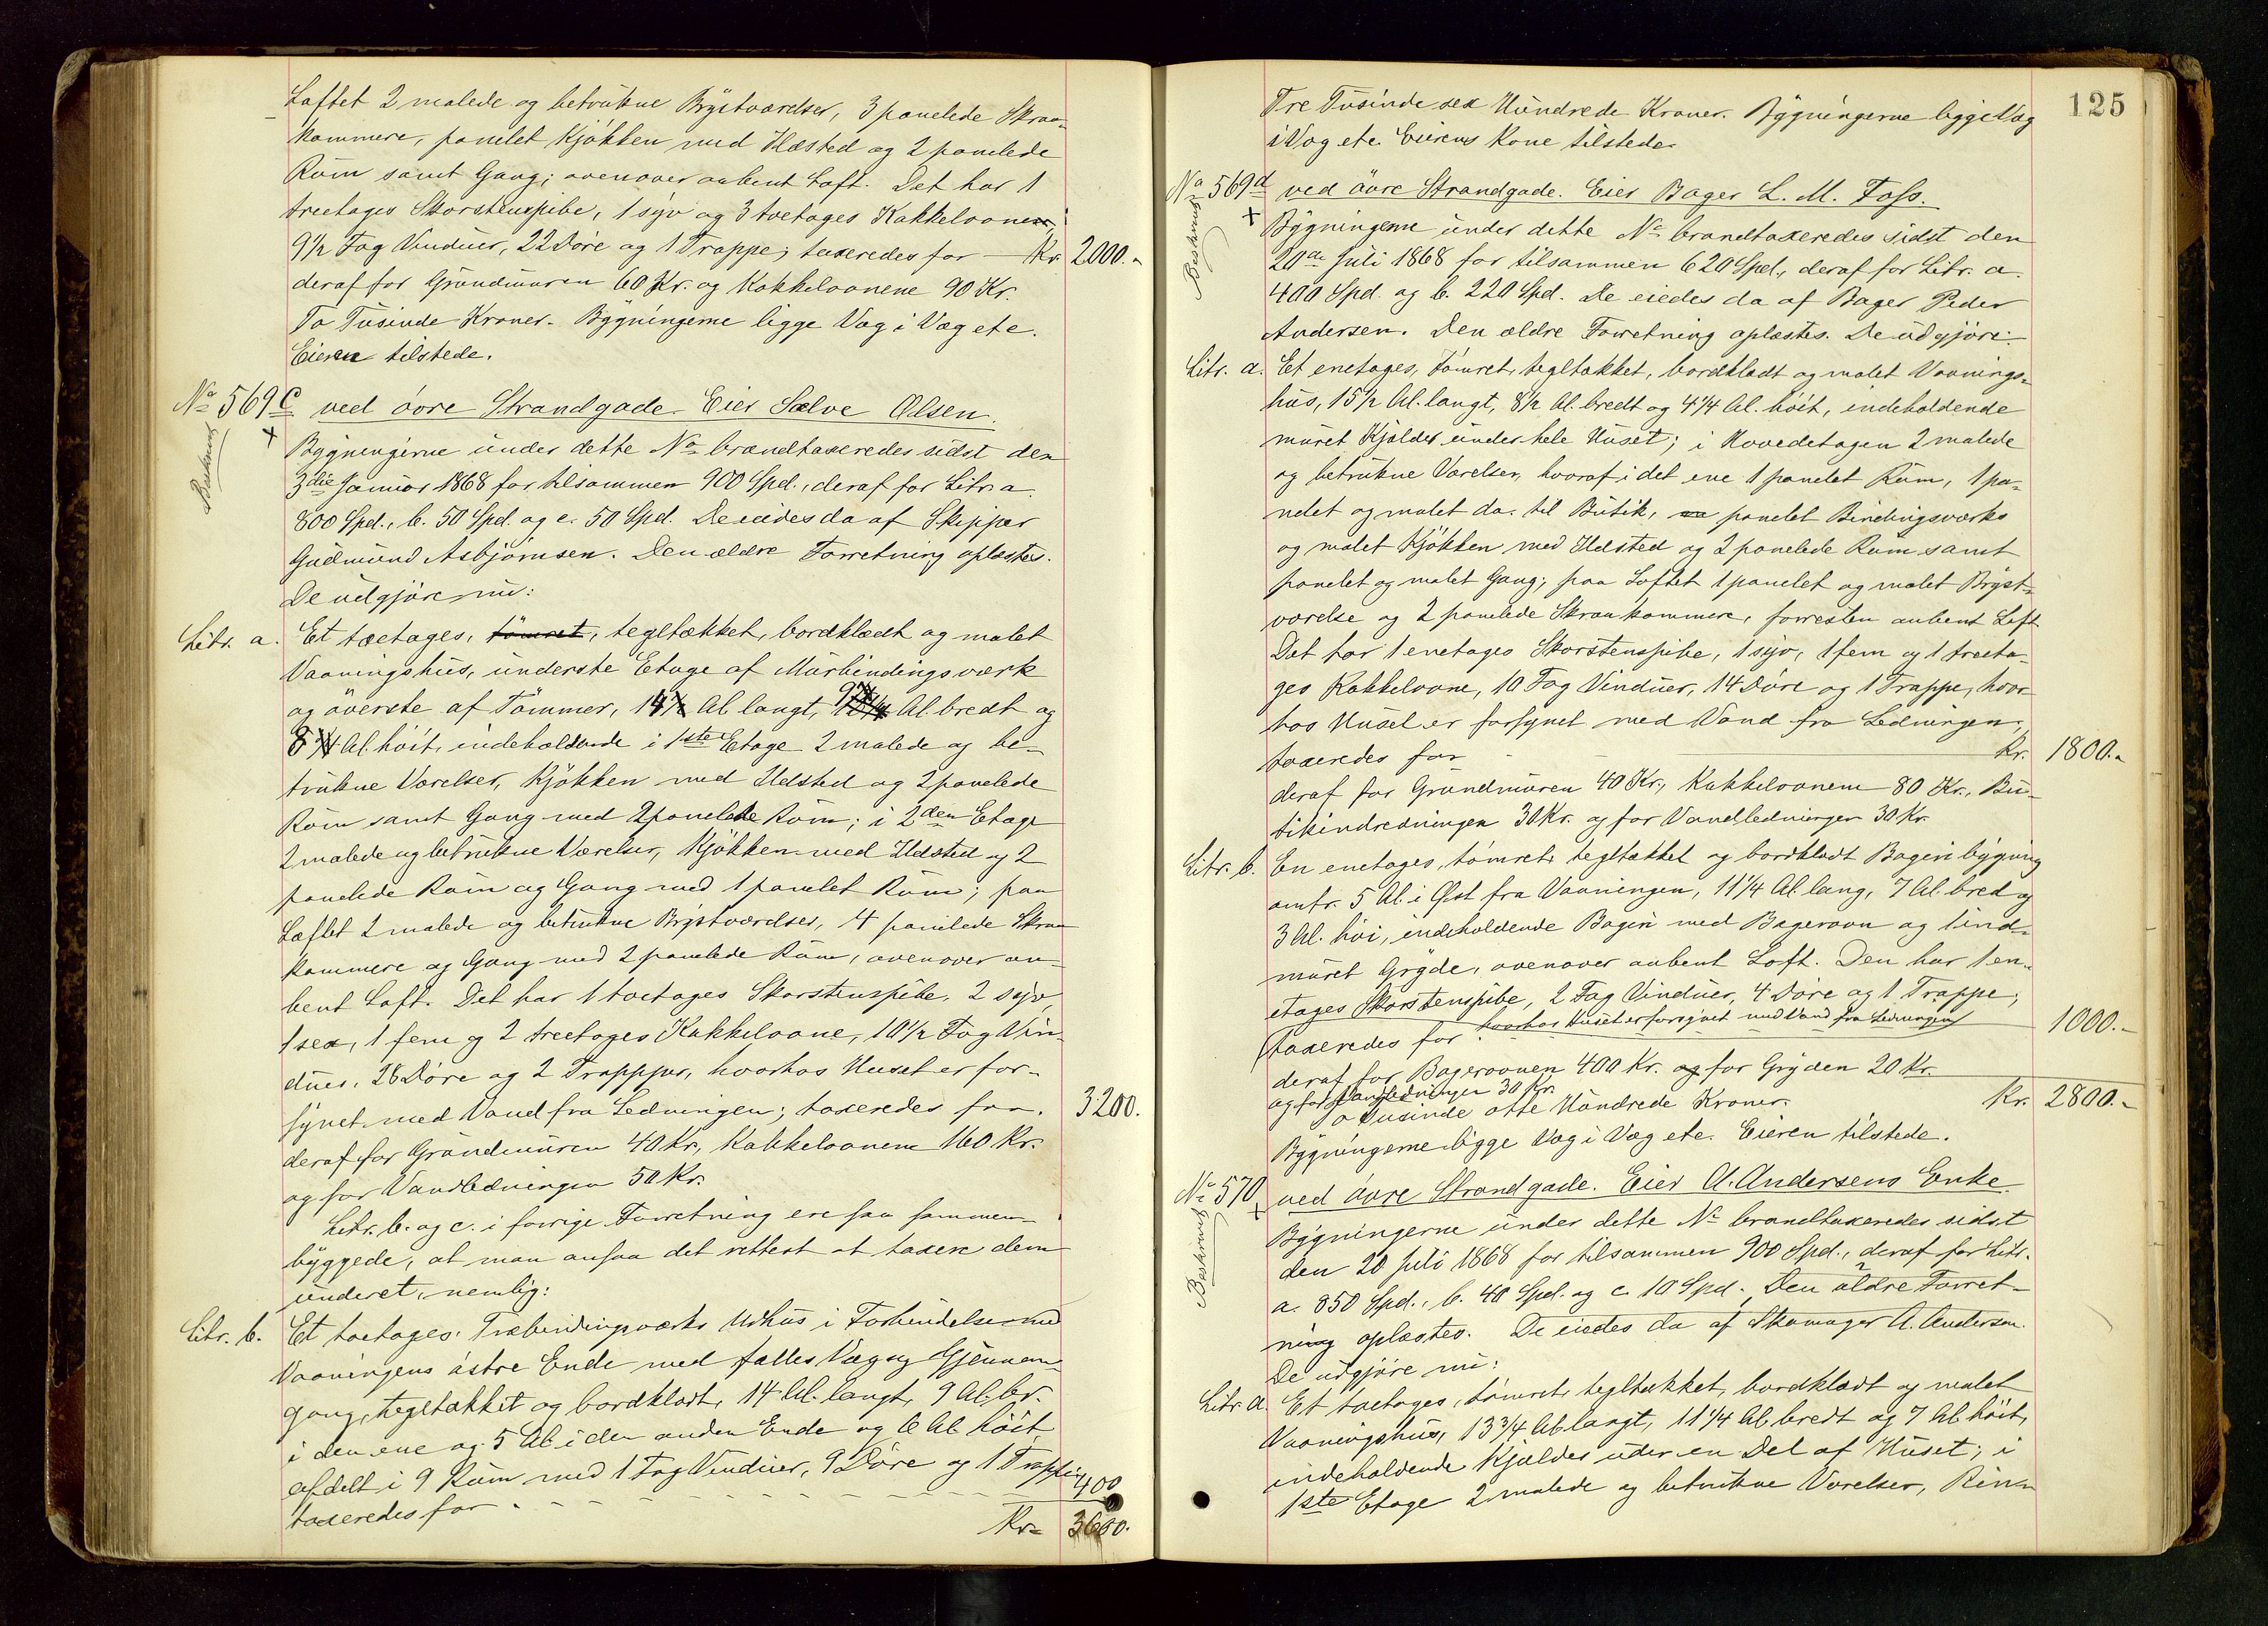 Loftet 2 malede og betrukne Brystværelser, 3 panelede Skraa-
kammere, panelet Kjökken med Ildsted og 2 panelede
Rüm samt Gang; ovenover aabent Loft. Det har 1
treetages Skorstenspibe, 1 syv og 3 toetages Kakkelovne,
9 1/2 Fag Vindüer, 22 Döre og 1 Trappe; taxeredes for — Kr. 2000.-
deraf for Gründmüren 60 Kr. og Kakkelovnene 90 Kr.
To Tüsinde Kroner. Bygningerne ligge Væg i Væg etc.
Eieren tilstede.
No 569c ved övre Strandgade. Eier Sælve Olsen.
Beskrevet
Bygningerne ünder dette No brandtaxeredes sidst den
3die Januar 1868 for tilsammen 900 Spd., deraf for Litr. a.
800 Spd., b. 50 Spd. og c. 50 Spd. De eiedes da af Skipper
Gudmund Asbjörnsen. Den ældre Forretning oplæstes.
De udgjöre nu:
Litr. a. Et toetages, tömret, tegltækket, bordklædt og malet
Vaaningshüs, ünderste Etage af Mürbindingsværk
og överste af Tömmer, 14 Al. langt, 9 Al. bredt og
8 Al. höit, indeholdende i 1ste Etage 2 malede og be-
trukne Værelser, Kjökken med Ildsted og 2 panelede
Rüm samt Gang med 2 panelede Rüm; i 2den Etage
2 malede og betrukne Værelser, Kjökken med Ildsted og 2
panelede Rüm og Gang med 1 panelet Rüm; paa
Loftet 2 malede og betrukne Brystværelser, 4 panelede Skraa-
kammere og Gang med 2 panelede Rüm, ovenover aa-
bent Loft. Det har 1 toetages Skorstenspibe, 2 syv,
1 sex, 1 fem og 2 treetages Kakkelovne, 10 1/2 Fag Vin-
düer, 28 Döre og 2 Trapper, hvorhos Huset er for-
synet med Vand fra Ledningen; taxeredes for. 3200.
deraf for Gründmüren 40 Kr., Kakkelovnene 160 Kr.
og for Vandledningen 50 Kr.
Litr. b. og c. i forrige Forretning ere saa sammen-
byggede, at man ansaa det rettest at taxere dem
ünderet, nemlig:
Litr. b. Et toetages Træbindingsværks Udhüs i Forbindelse med
Vaaningens östre Ende med fælles Væg og Gjennem-
gang, tegltækket og bordklædt, 14 Al. langt, 9 Al. br.
i den ene og 5 Al. i den anden Ende og 6 Al. höit,
afdelt i 9 Rüm med 1 Fag Vindüer, 9 Döre og 1 Trappe,
taxeredes for 400
Kr. 3600.
125
Tre Tüsinde sex Hündrede Kroner. Bygningerne ligge Væg
i Væg etc. Eierens Kone tilstede.
No 569d ved övre Strandgade. Eier Bager L. M. Foss.
Beskrevet
Bygningerne ünder dette No brandtaxeredes sidst den
20de Juli 1868 for tilsammen 620 Spd., deraf for Litr. a.
400 Spd. og b. 220 Spd. De eiedes da af Bager Peder
Andersen. Den ældre Forretning oplæstes. De udgjöre:
Litr. a. Et enetages, tömret, tegltækket, bordklædt og malet Vaanings-
hüs, 15 1/2 Al. langt, 8 1/2 Al. bredt og 4 1/4 Al. höit, indeholdende
müret Kjælder ünder hele Hüset; i Hovedetagen 2 malede
og betrukne Værelser, hvoraf i det ene 1 panelet Rüm, 1 pa-
nelet og malet do. til Butik, panelet Bindingsværks
og malet Kjökken med Ildsted og 2 panelede Rüm samt
panelet og malet Gang; paa Loftet 1 panelet og malet Bryst-
værelse og 2 panelede Skraakammere, forresten aabent Loft.
Det har 1 enetages Skorstenspibe, 1 syv, 1 fem og 1 treeta-
ges Kakkelovne, 10 Fag Vindüer, 14 Döre og 1 Trappe, hvor-
hos Huset er forsynet med Vand fra Ledningen,
taxeredes for Kr. 1800.-
deraf for Gründmüren 40 Kr., Kakkelovnene 80 Kr., Bu-
tikindredningen 30 Kr. og for Vandledningen 30 Kr.
Litr. b. En enetages, tömret, tegltækket og bordklædt Bageribygning
omtr. 5 Al. i Öst fra Vaaningen, 11 1/4 Al. lang, 7 Al. bred og
3 Al. höi, indeholdende Bageri med Bagerovn og 1 ind-
müret Gryde, ovenover aabent Loft. Den har 1 en-
etages Skorstenspibe, 2 Fag Vindüer, 4 Döre og 1 Trappe,
hvorhos Huset er forsynet med Vand fra Ledningen
taxeredes for 1000.-
deraf for Bagerovnen 400 Kr. og for Gryden 20 Kr.
og for Vandledningen 30 Kr.
To Tusinde otte Hündrede Kroner. Kr. 2800.-
Bygningerne ligge Væg i Væg etc. Eieren tilstede.
No 570 ved övre Strandgade. Eier A. Andersens Enke.
Beskrevet
Bygningerne ünder dette No brandtaxeredes sidst
den 20 Juli 1868 for tilsammen 900 Spd., deraf for Litr.
a. 850 Spd., b. 40 Spd. og c. 10 Spd. Den ældre Forret-
ning oplæstes. De eiedes da af Skomager A. Andersen.
De udgjöre nu:
Litr. a. Et toetages, tömret, tegltækket, bordklædt og malet
Vaaningshüs, 13 3/4 Al. langt, 11 1/4 Al. bredt og 7 Al. höit,
indeholdende Kjælder under en Del af Hüset; i
1ste Etage 2 malede og betrukne Værelser,